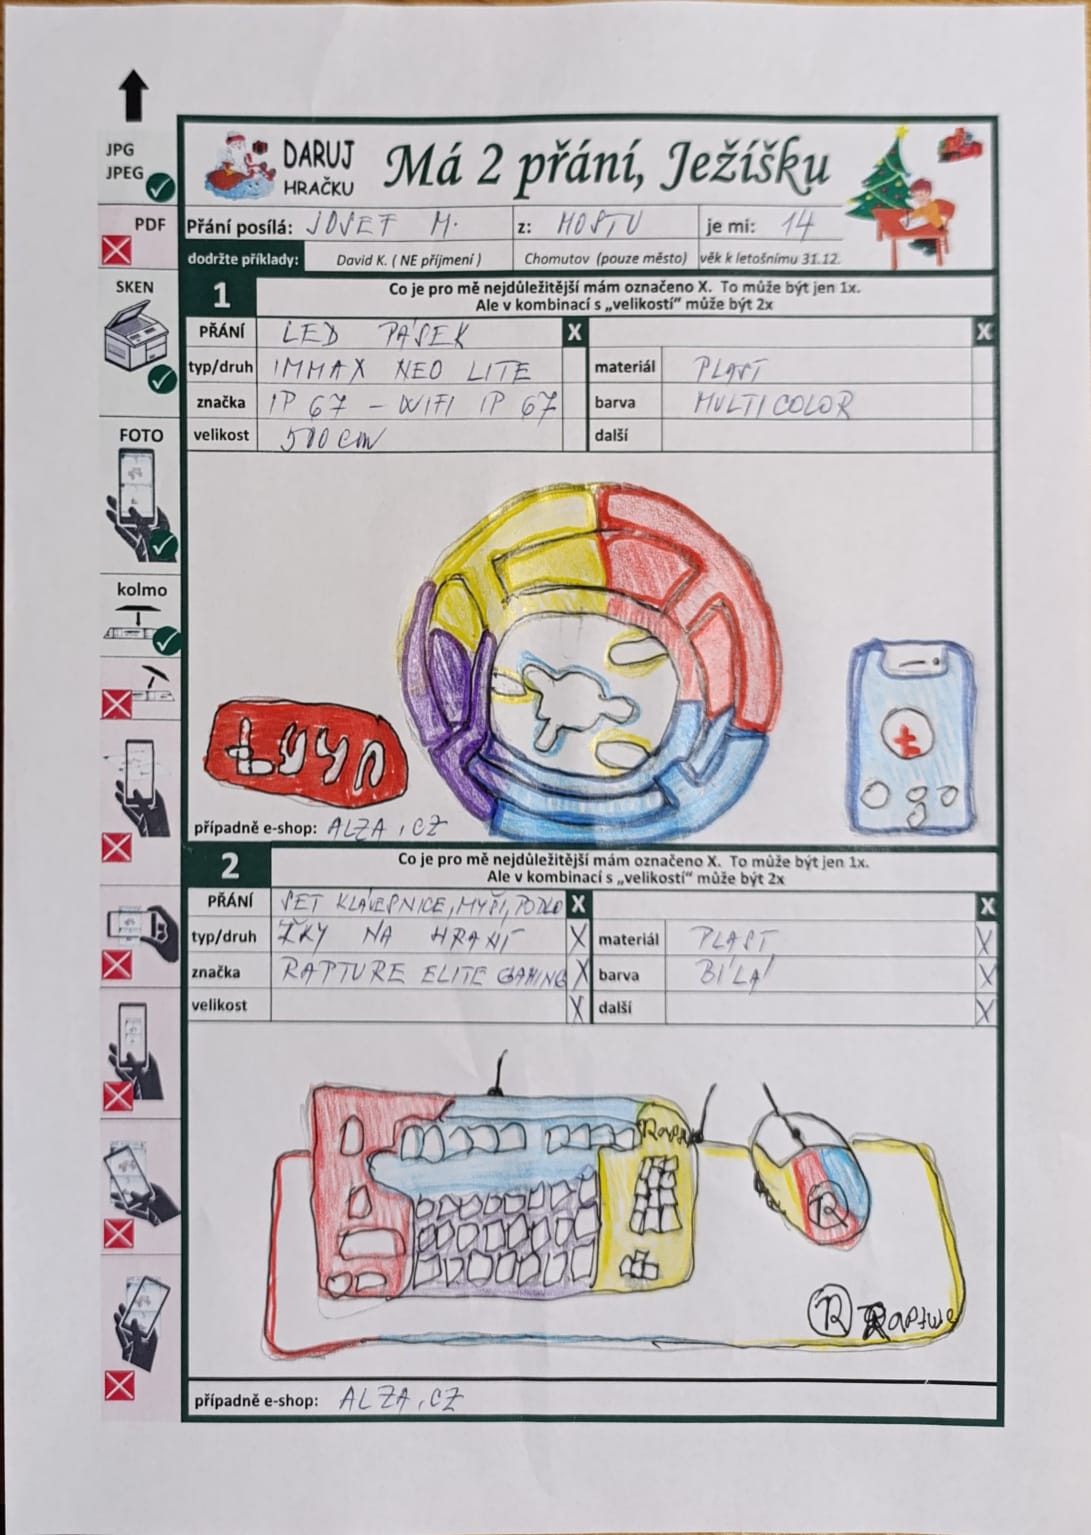 JPG
JPEG
PDF
SKEN
FOTO
kolmo
DARUJ
HRAČKU
Má 2 přání, Ježíšku
Přání posílá: JOSEF M. z: MOSTU je mi: 14
dodržte příklady: David K. ( NE příjmení ) Chomutov (pouze město) věk k letošnímu 31.12.
1 Co je pro mě nejdůležitější mám označeno X. To může být jen 1x.
Ale v kombinací s „velikostí“ může být 2x
PŘÁNÍ LED PÁSEK X X
typ/druh IMMAX NEO LITE materiál PLAST
značka IP 67 - WIFI IP 67 barva MULTICOLOR
velikost 500 cm další
případně e-shop: ALZA.CZ
2 Co je pro mě nejdůležitější mám označeno X. To může být jen 1x.
Ale v kombinací s „velikostí“ může být 2x
PŘÁNÍ SET KLÁVESNICE, MYŠI, PODLO X X
typ/druh ŽKY NA HRANÍ X materiál PLAST X
značka RAPTURE ELITE GAMING X barva BÍLÁ X
velikost X další X
R
R Rapture
případně e-shop: ALZA.CZ